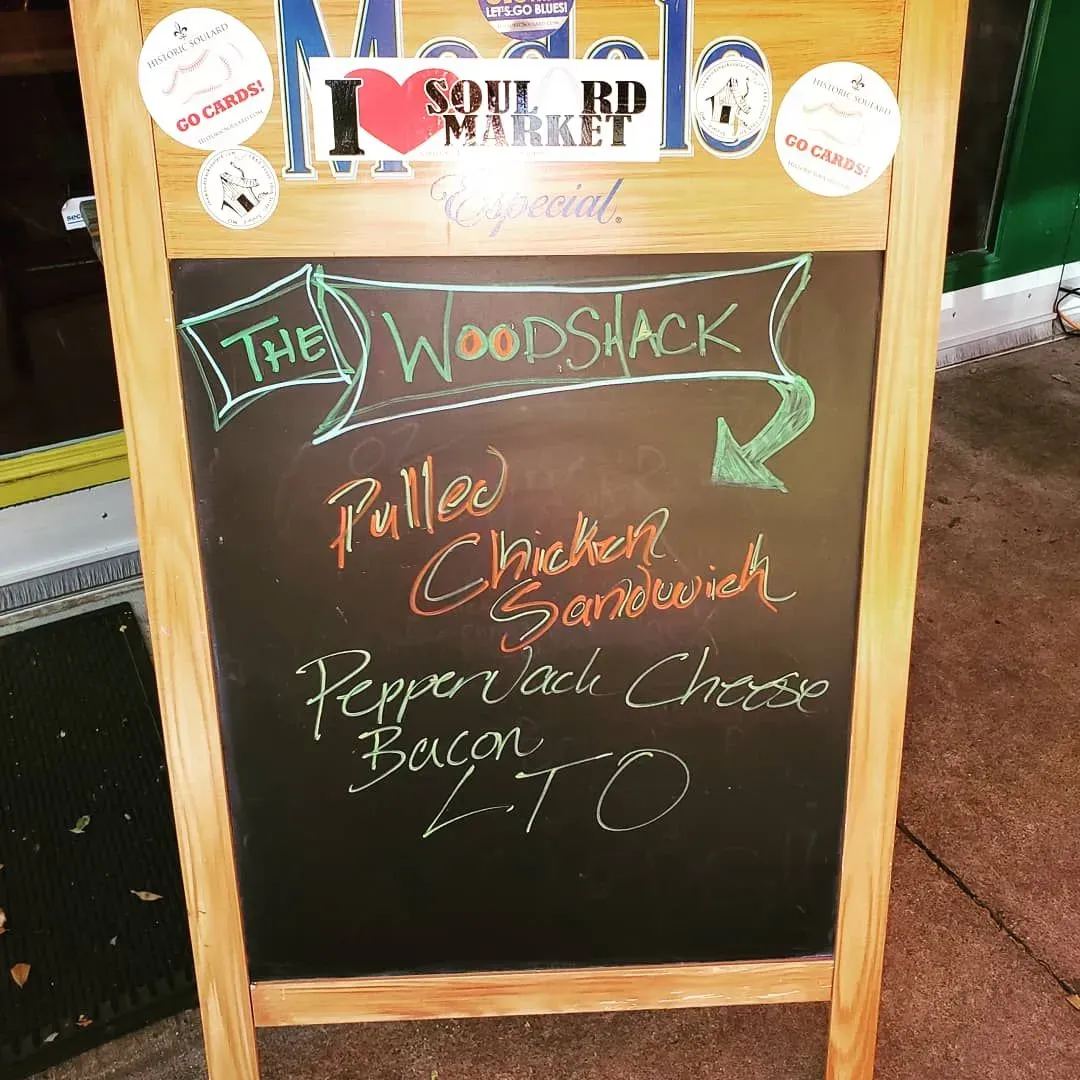 LET'S GO BLUES!
HISTORIC SOULARD
GO CARDS!
HISTORICSOULARD.COM
Modelo
I SOUL RD
MARKET
HISTORIC SOULARD
GO CARDS!
Especial
THE WOODSHACK
Pulled
Chicken
Sandwich
PepperJack Cheese
Bacon
LTO